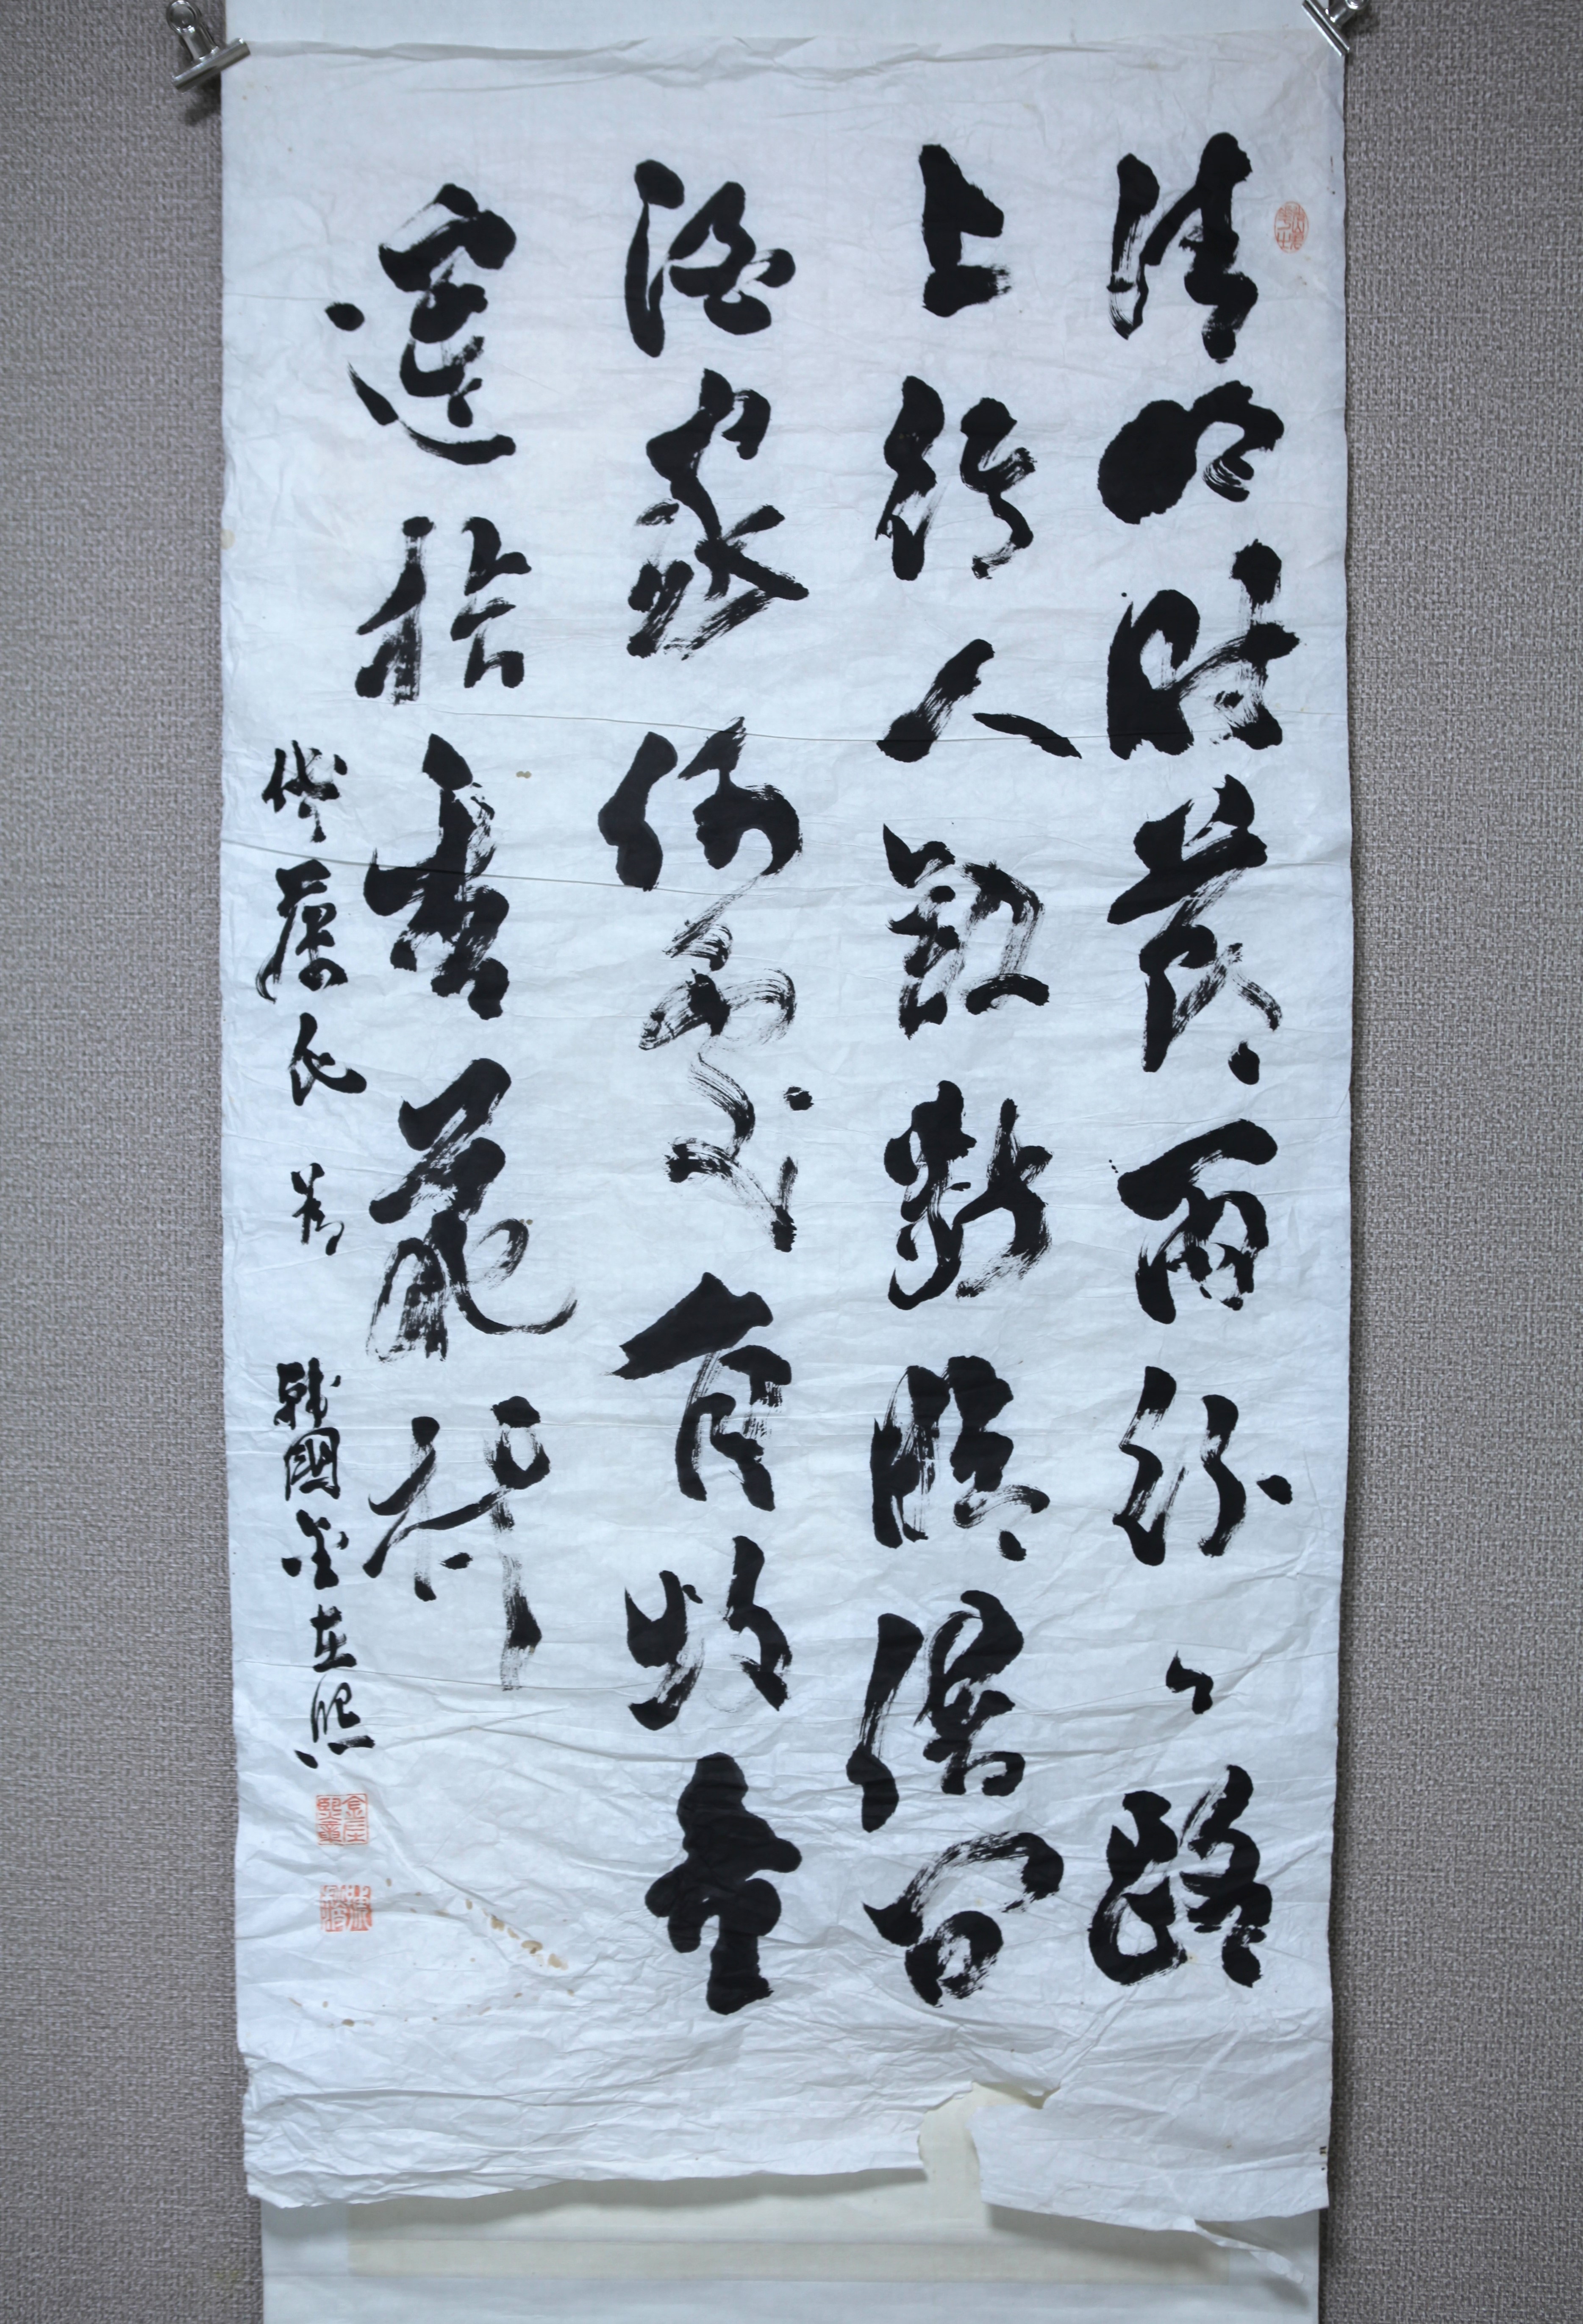 清明時節雨紛〻路
上行人欲斷魂借問
酒家何處有牧童
遙指杏花村
藤氏 韓國金在熙